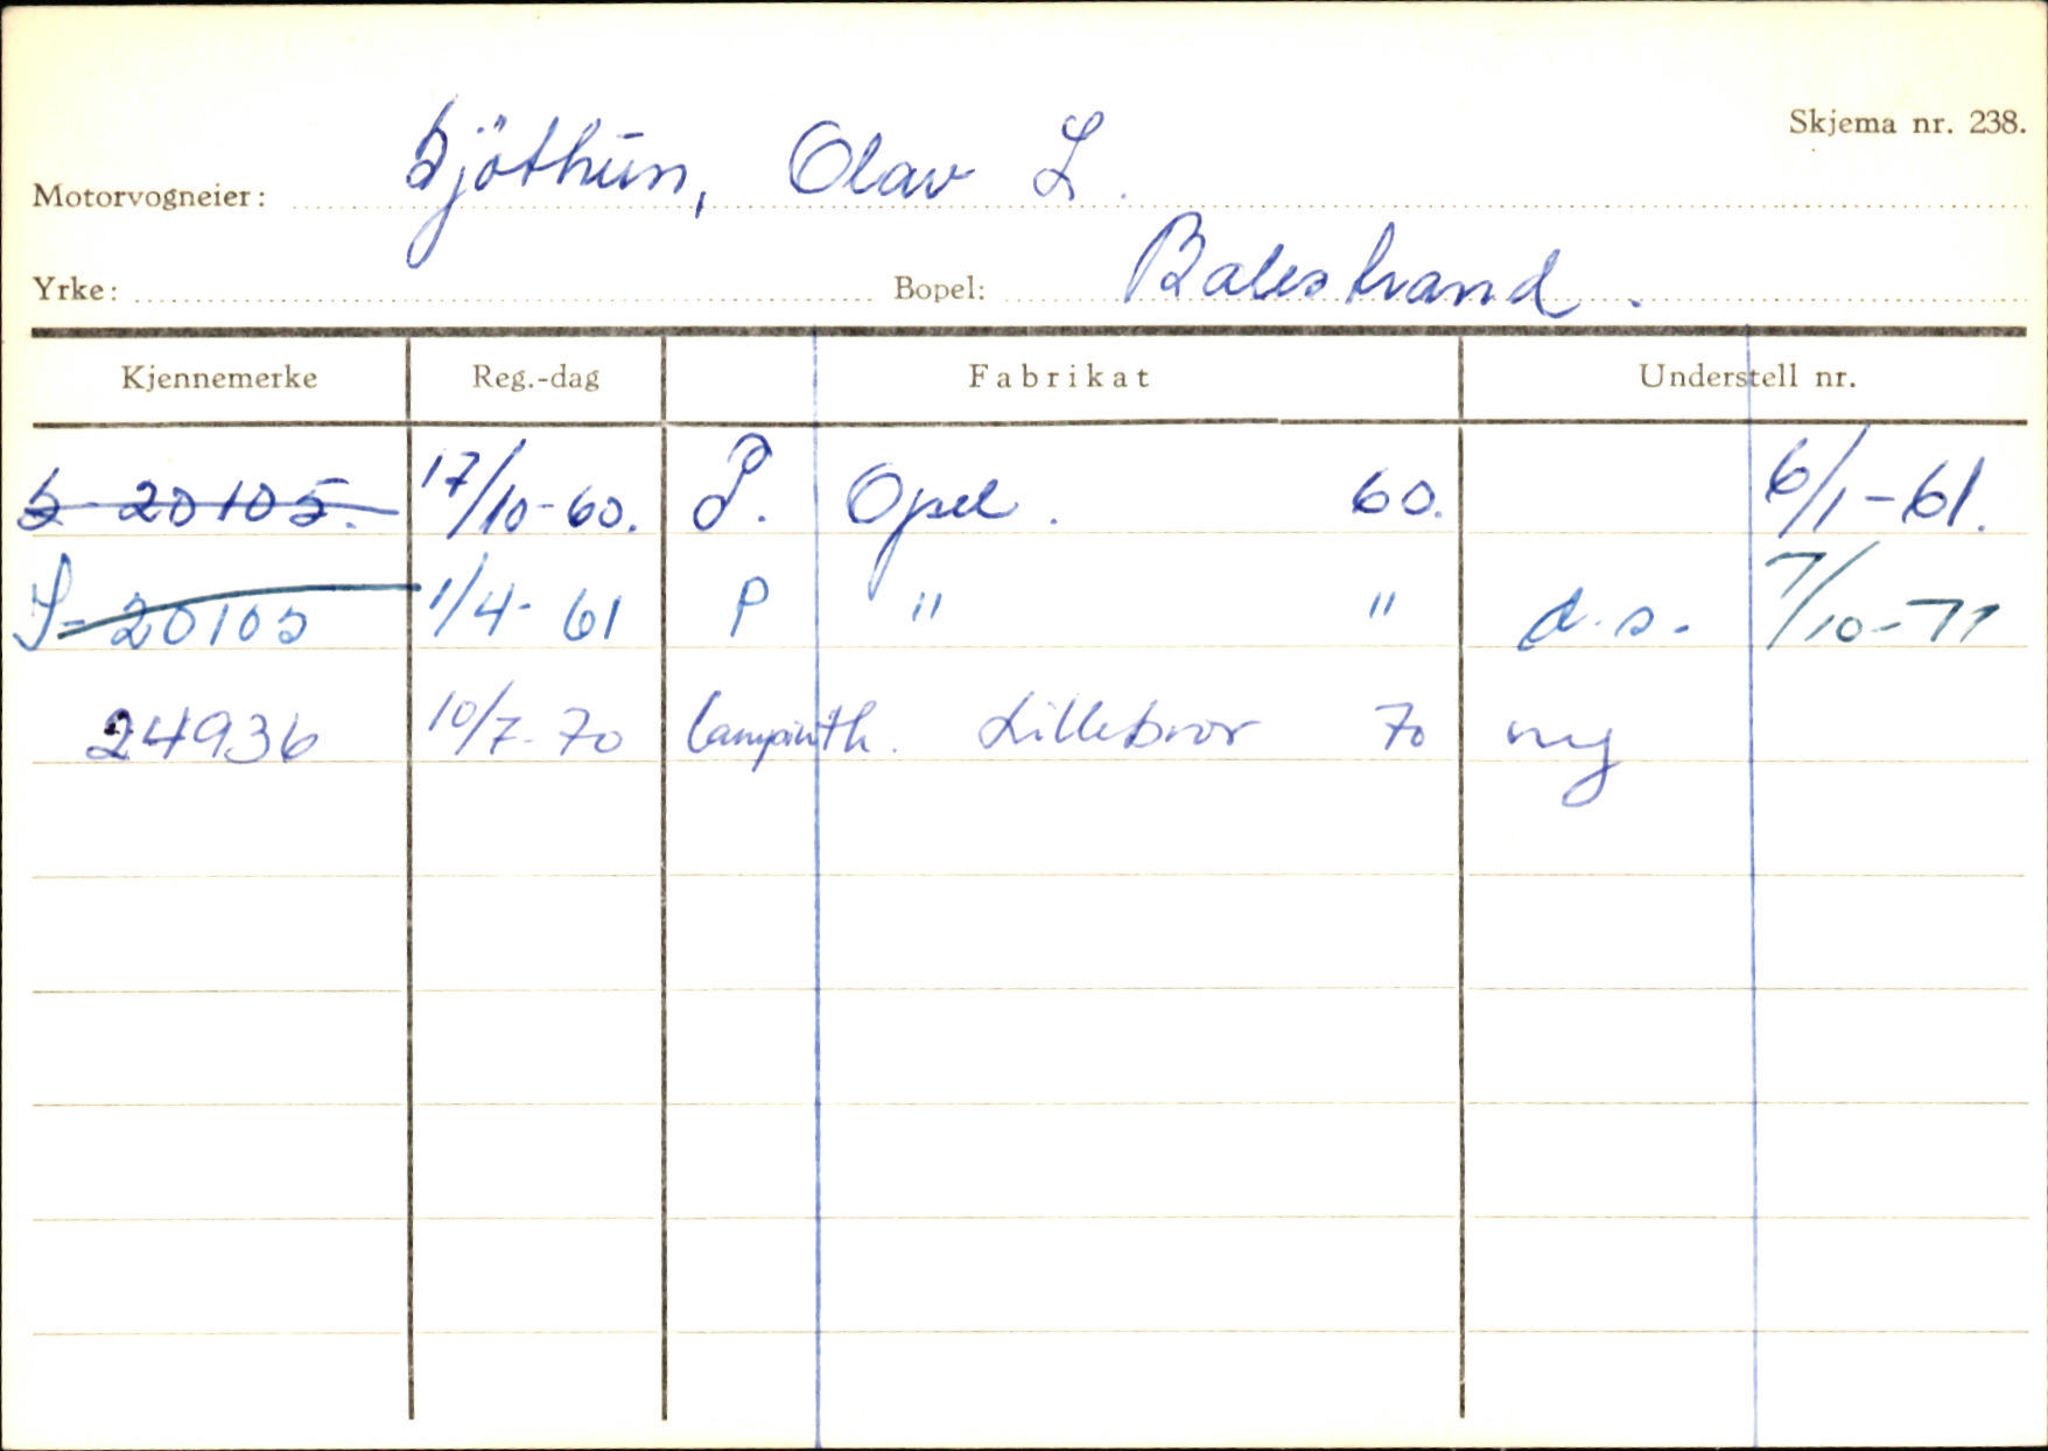 Skjema nr. 238.
Motorvogneier: Sjöthun, Olav L.
Yrke: Bopel: Balestrand.
Kjennemerke Reg.-dag Fabrikat Understell nr.
S 20105. 17/10-60. P. Opel. 60. 6/1-61.
S-20105 1/4-61 P " " d.s. 7/10-71
24936 10/7-70 Lillebror 70 ny